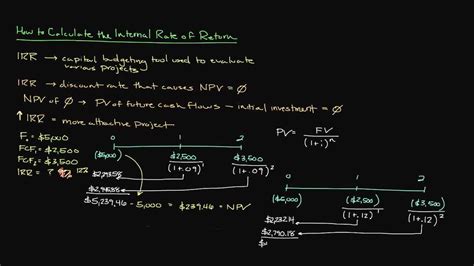 How to Calculate the Internal Rate of Return
IRR → capital budgeting tool used to evaluate
various projects
IRR → discount rate that causes NPV = ∅
NPV of ∅ → PV of future cash flows − initial investment = ∅
↑ IRR = more attractive project
F₀ = $5,000
FCF₁ = $2,500
FCF₂ = $3,500
IRR = ?
IRR
0 1 2
($5,000) $2,500 $3,500
(1+.09) (1+.09)²
$2,293.58
$2,945.88
$5,239.46 − 5,000 = $239.46 = NPV
PV = FV
(1+i)ⁿ
0 1 2
($5,000) ($2,500) ($3,500)
(1+.12) (1+.12)²
$2,232.14
$2,790.18